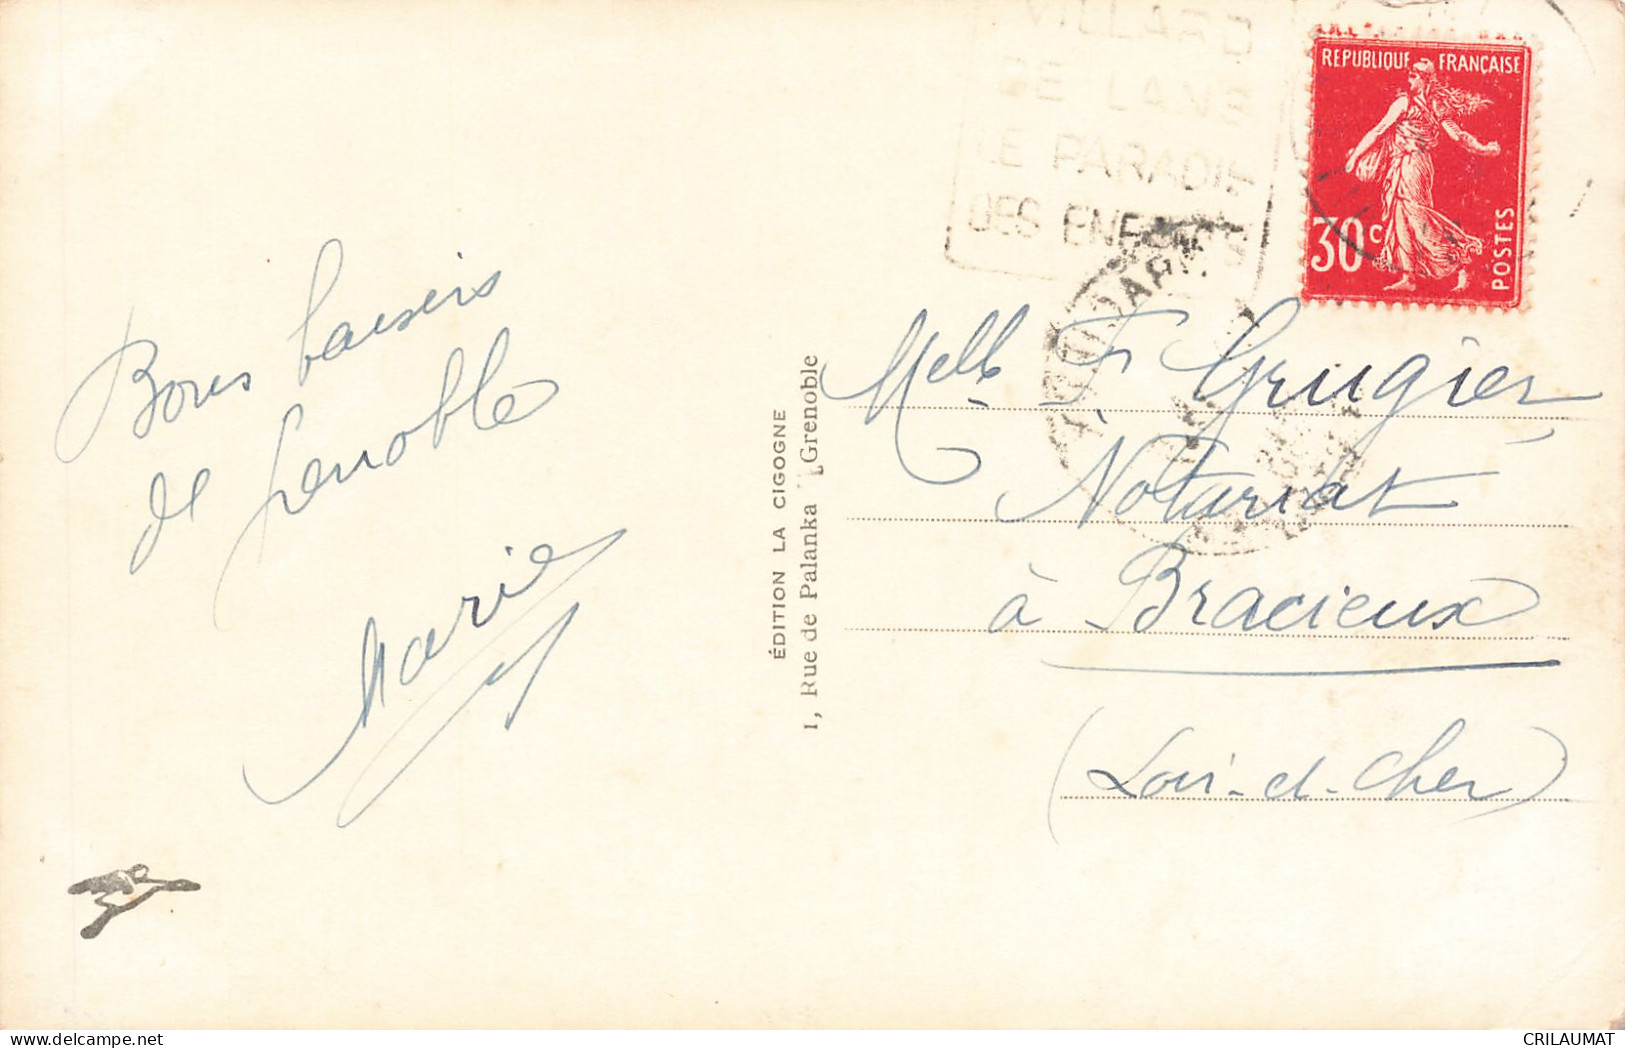 Bons baisers
de Grenoble
Marie
ÉDITION LA CIGOGNE
1, Rue de Palanka Grenoble
VILLARD
DE LANS
LE PARADIS
DES ENFANTS
REPUBLIQUE FRANÇAISE
30c
POSTES
Melle F. Grugier
Notariat
à Bracieux
(Loir-et-Cher)
CRILAUMAT